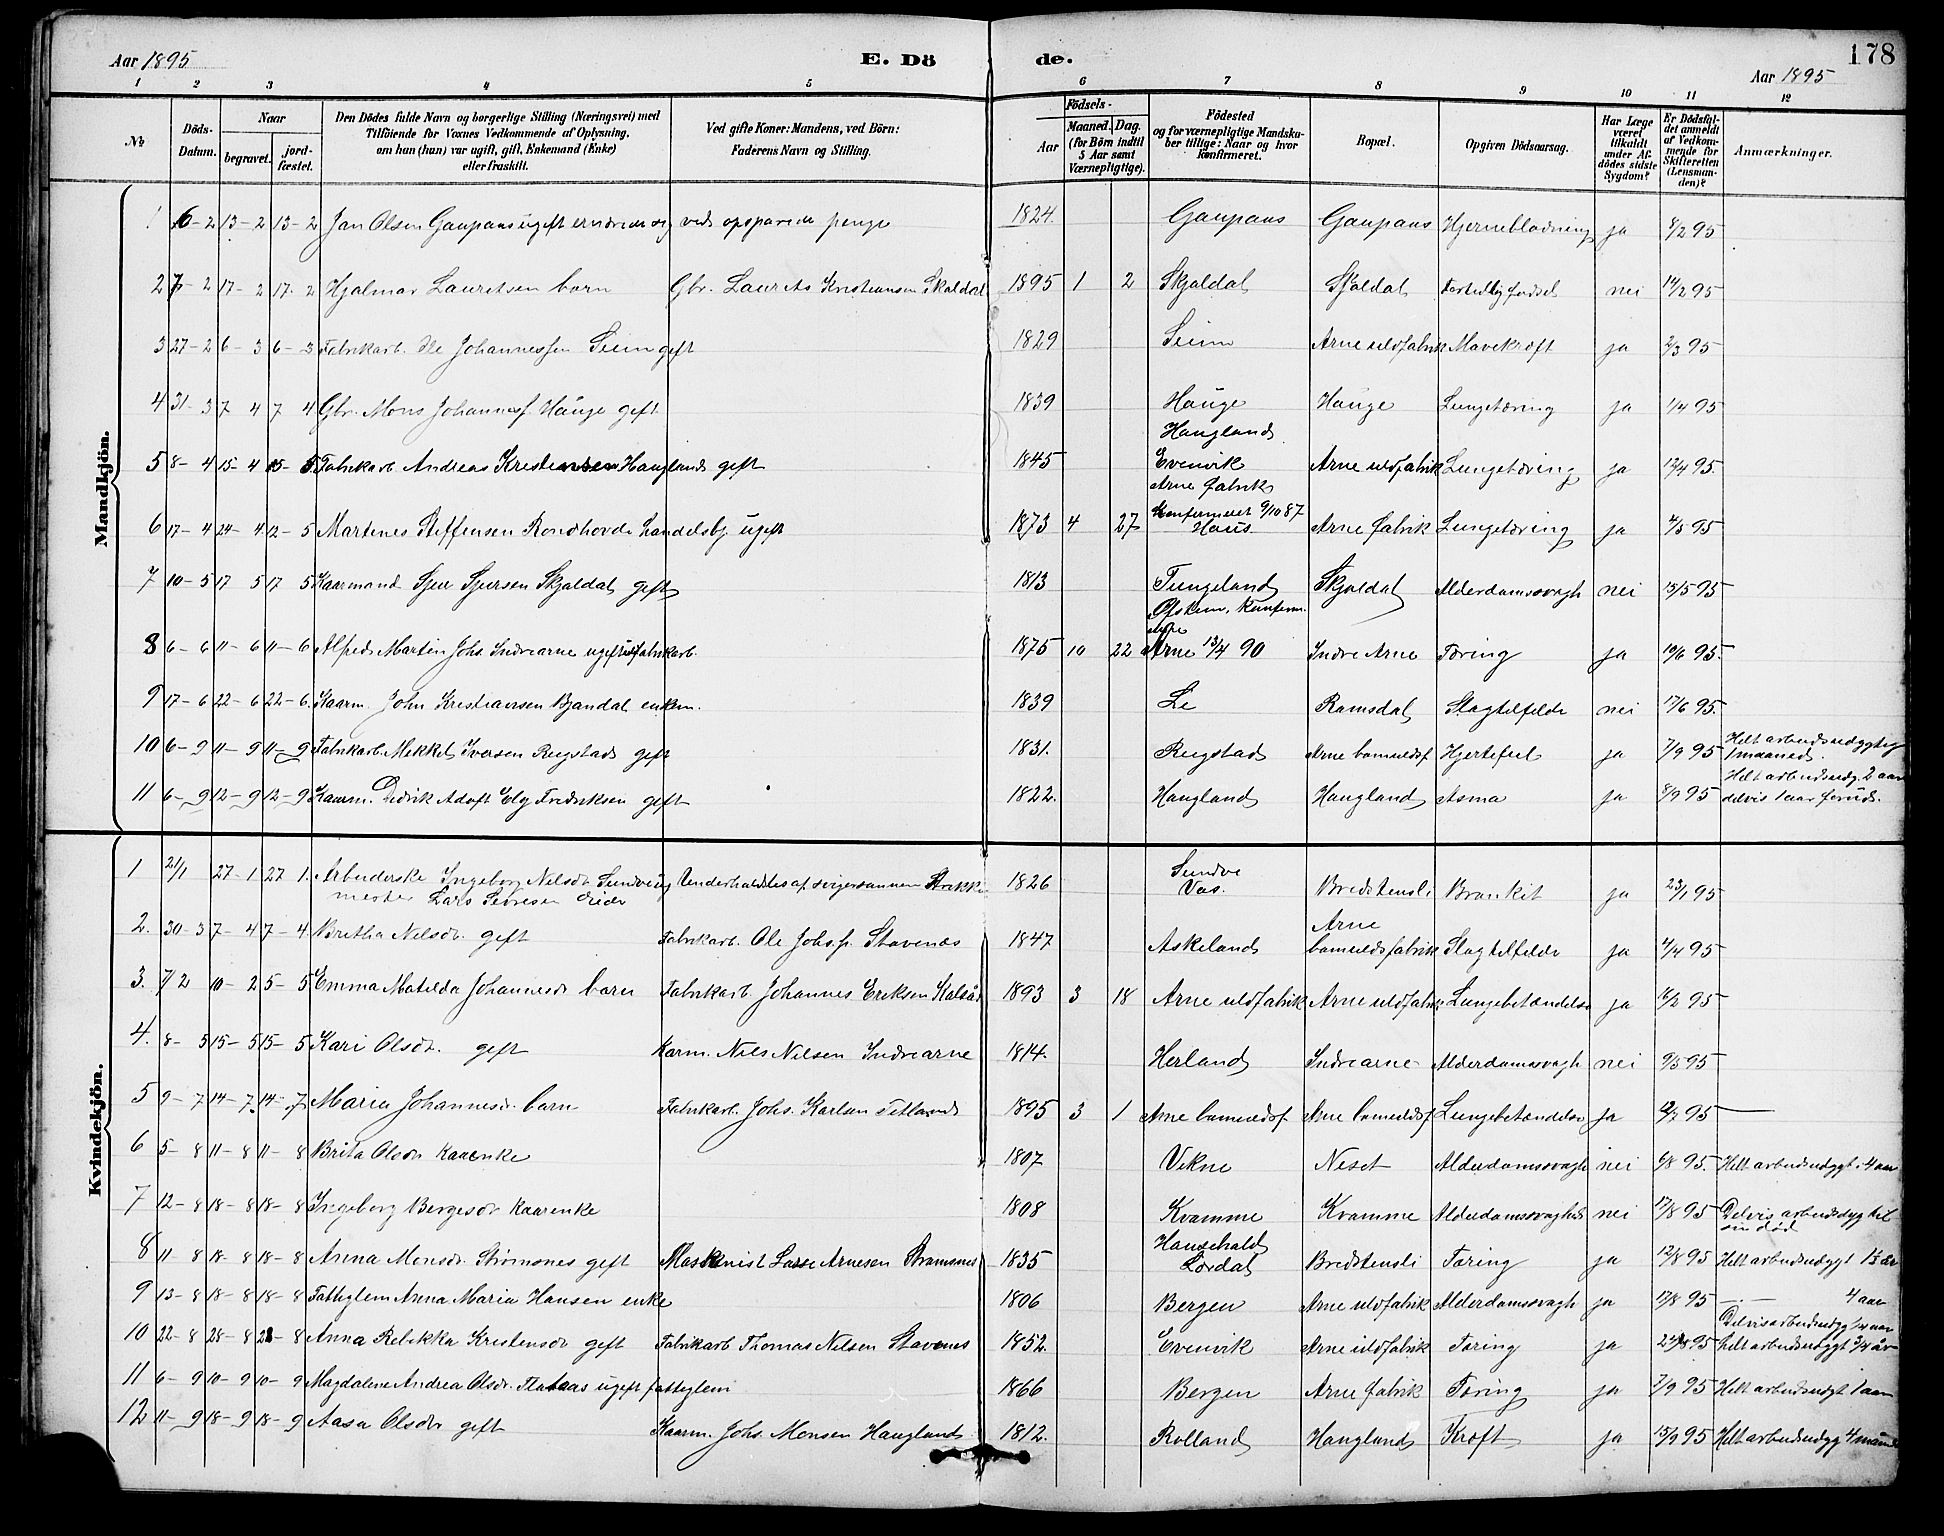 Aar 1895 E. Dö de. 178
Aar 1895
1 2 3 4 5 6 7 8 9 10 11 12
No
Döds-Datum.
Naar
begravet. jord-fæstet.
Den Dödes fulde Navn og borgerlige Stilling (Næringsvei) med
Tilföiende for Voxnes Vedkommende af Oplysning,
om han (hun) var ugift, gift, Enkemand (Enke)
eller fraskilt.
Ved gifte Koner: Mandens, ved Börn:
Faderens Navn og Stilling.
Födsels-
Aar Maaned. Dag.
(for Börn indtil
5 Aar samt
Værnepligtige).
Födested
og for værnepligtige Mandska-
ber tillige: Naar og hvor
konfirmeret.
Bopæl.
Opgiven Dödsaarsag.
Har Læge
været
tilkaldt
under Af-
dödes sidste
Sygdom?
Er Dödsfal-
det anmeldt
af Vedkom-
mende for
Skifteretten
(Lensman-
den)?
Anmærkninger.
Mandkjön.
1 6-2 13-2 13-2 Jan Olsen Gaupaas ugift ernærede sig ved opsparede penge 1824. Gaupaas Gaupaas Hjerneblødning ja 8/2 95
2 7-2 17-2 17-2 Hjalmar Lauritsen barn Gbr. Laurits Kristiansen Skjaldal 1895 1 2 Skjaldal Skjaldal Fortidlig fødsel nei 14/2 95
3 27-2 6-3 6-3 Fabrikarb. Ole Johannessen Seim gift 1829 Seim Arne uldfabrik Mavekræft ja 2/3 95
4 31-3 7 4 7 4 Gbr. Mons Johannesf. Hauge gift 1839 Hauge Hauge Lungetæring ja 1/4 95
Haugland
5 8-4 15-4 15-5 Fabrikarb. Andreas Kristensen Haugland gift 1845 Evenvik Arne uldfabrik Lungetæring ja 12/4 95.
Arne fabrik
Konfirmeret 9/10 87
6 17-4 24-4 12-5 Martines Steffensen Rondhovde handelsbj. ugift 1873 4 27 Haus Arne fabrik Lungetæring ja 4/5 95
7 10-5 17 5 17 5 Kaarmand Sjur Sjursen Skjaldal gift 1813 Tungeland Skjaldal Alderdomssvagh nei 13/5 95
konferm.
8 6-6 11-6 11-6 Alfred Martin Johs. Indrearne ugift fabrikarb. 1875 10 22 Arne 13/4 90 Indre Arne Tæring ja 10/6 95.
9 17-6 22-6 22-6. Kaarm. John Kristiansen Bjøndal enkem. 1839 Li Ramsdal Slagtilfælde nei 17/6 95.
10 6-9 11-9 11-9 Fabrikarb. Mikkel Iversen Rugstad gift 1831. Rugstad Arne bomuldsf Hjertefeil ja 7/9 95 Helt arbeidsudygtig
1 maaned.
11 6-9 12-9 12-9 Kaarm. Didrik Adolf Elg Fredriksen gift 1822. Haugland Haugland Asma ja 8/9 95 Helt arbeidsudyg. 2 aar
delvis 1 aar forud.
Kvindekjön.
1 21/1 27-1 27 1. Arbeiderske Ingeborg Nilsdr. Sundve ug. Underholdtes af svigersønnen Strikke 1826 Sundve
Vos. Bredstensli Bronkit ja 23/1 95
mester Lars Seversen
2. 30-3 7-4 7-4 Britha Nilsdr. gift Fabrikarb. Ole Johs.f. Stavenæs 1847 Askeland Arne
bomuldsfabrik Slagtilfelde ja 4/4 95
3. 7 2 10-2 5-5 Emma Matilda Johannesdr. barn Fabrikarb Johannes Eriksen Kalsås 1893 3 18 Arne uldfabrik Arne uldfabrik Lungebetændelse ja 8/2 95
4. 8-5 15-5 15-5 Kari Olsdr. gift Karm. Nils Nilsen Indrearne 1814. Herland Indrearne Alderdomssvagh nei 9/5 95
5 9-7 14-7 14-7 Maria Johannesdr. barn Fabrikarb. Johs. Karlsen Tetland 1895 3 1 Arne bomuldsf Arne bomuldsf Lungebetændelse ja 12/7 95 —
6 5-8 11-8 11-8 Brita Olsdr kaarenke 1807 Vikne Neset Alderdomssvagh nei 6/8 95. Helt arbeidsudygt. 4 aar
7 12-8 18-8 18-8 Ingeborg Bergesdr kaarenke 1808 Kvamme Kvamme Alderdomssvaghed nei 17/8 95 Delvis arbeidsdyg til
sin død
8 11-8 18-8 18-8 Anna Monsdr. Strømsnes gift Maskinist Lasse Arnesen Strømsnes 1835 Haugehald
Lørdal Bredstensli Tæring ja 12/8 95 Helt arbeidsudygt 1½ år
9 13-8 18-8 18-8 Fattiglem Anna Maria Hansen enke 1806 Bergen Arne uldfabrik Alderdomssvagh ja 17/8 95 —"— 4 aar
Delvis arbeidsudyg ¼ aar
10 22-8 28-8 28-8 Anna Rebekka Kristensdr gift Fabrikarb Thomas Nilsen Stavenes 1852. Evenvik Arne uldfabrik Tæring ja 24/8 95 helt arbeidsudygt ¾ år
11 6-9 10-9 10-9 Magdalene Andrea Olsdr. Flataas ugift fattiglem 1866 Bergen Arne fabrik Tæring ja 7/9 95 Helt arbeidsudygt 1 aar
12 11-9 18-9 18-9 Aasa Olsdr gift Kaarm. Johs. Monsen Haugland 1812. Rolland Haugland Kræft ja 15/9 95 Helt arbeidsudyg 4 maaned